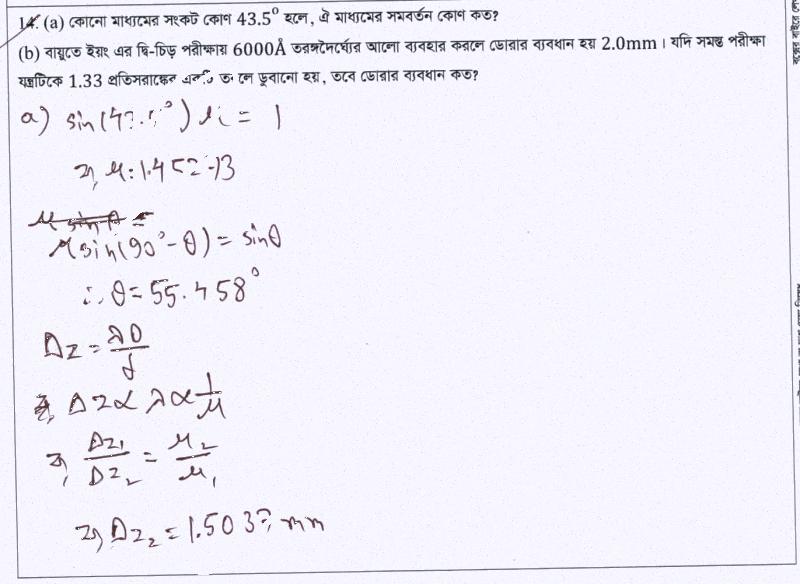 14. (a) কোনো মাধ্যমের সংকট কোণ 43.5° হলে, ঐ মাধ্যমের সমবর্তন কোণ কত?
(b) বায়ুতে ইয়ং এর দ্বি-চিড় পরীক্ষায় 6000Å তরঙ্গদৈর্ঘ্যের আলো ব্যবহার করলে ডোরার ব্যবধান হয় 2.0mm। যদি সমস্ত পরীক্ষা
যন্ত্রটিকে 1.33 প্রতিসরাঙ্কের ডুবানো হয়, তবে ডোরার ব্যবধান কত?
a) sin(43.5°) μ = 1
বা, μ = 1.45
μ sin(90°-θ) = sinθ
∴ θ = 55.458°
Δz = λD/d
বা, Δz ∝ λ ∝ 1/μ
বা, Δz₁/Δz₂ = μ₂/μ₁
বা, Δz₂ = 1.503 mm